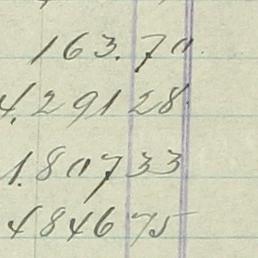 163.70
4,291 28
1,807 33
4846 75